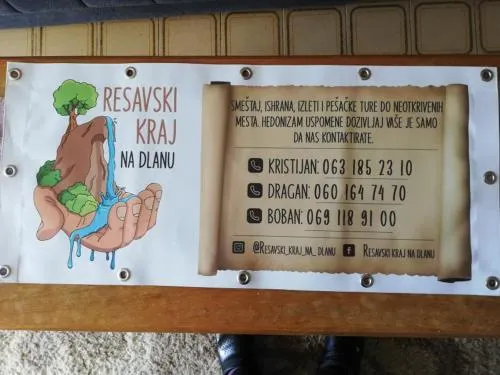 RESAVSKI
KRAJ
NA DLANU
SMEŠTAJ, ISHRANA, IZLETI I PEŠAČKE TURE DO NEOTKRIVENIH
MESTA. HEDONIZAM USPOMENE DOZIVLJAJ VAŠE JE SAMO
DA NAS KONTAKTIRATE.
KRISTIJAN: 063 185 23 10
DRAGAN: 060 164 74 70
BOBAN: 069 118 91 00
@RESAVSKI_KRAJ_NA_DLANU
RESAVSKI KRAJ NA DLANU